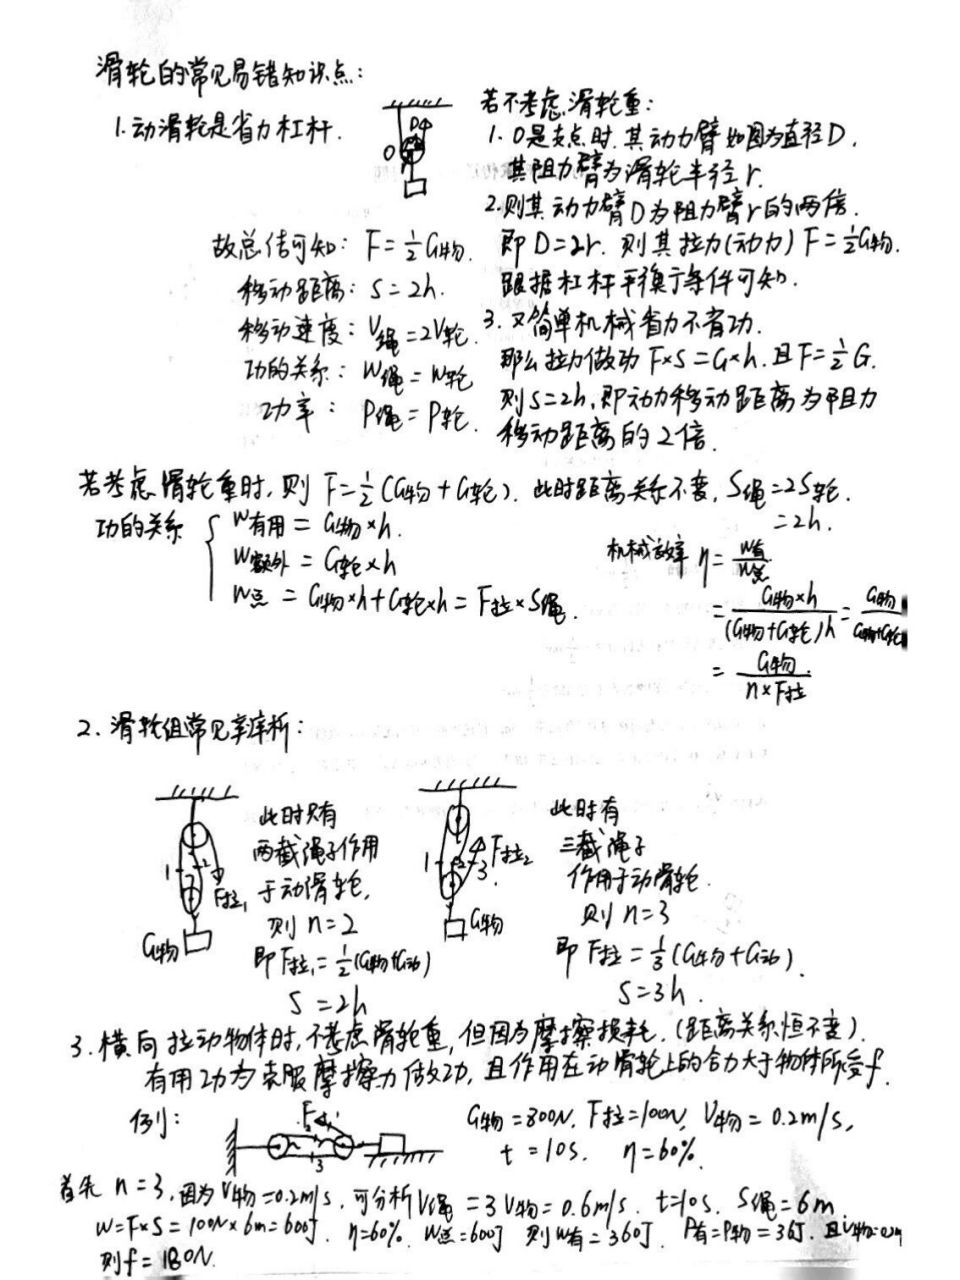 滑轮的常见易错知识点:
1.动滑轮是省力杠杆.
O
D
若不考虑滑轮重:
1. O是支点时.其动力臂如图为直径D.
其阻力臂为滑轮半径r.
2.则其动力臂D为阻力臂r的两倍.
即D=2r.则其拉力(动力)F=½G物.
跟据杠杆平衡条件可知.
3.又简单机械省力不省功.
那么拉力做功F×S=G×h.且F=½G.
则S=2h,即动力移动距离为阻力
移动距离的2倍.
故总结可知: F=½G物.
移动距离: S=2h.
移动速度: V绳=2V轮.
功的关系: W绳=W轮
功率: P绳=P轮.
若考虑滑轮重时,则F=½(G物+G轮). 此时距离关系不变, S绳=2S轮.
=2h.
功的关系
W有用=G物×h.
W额外=G轮×h
W总=G物×h+G轮×h=F拉×S绳.
机械效率 η=W有/W总
=G物×h/(G物+G轮)h=G物/G物+G轮
=G物/n×F拉
2.滑轮组常见
1
2
F拉1
G物
此时只有
两截绳子作用
于动滑轮,
则n=2
即F拉1=½(G物+G动)
S=2h
1
2
3
F拉2
G物
此时有
三截绳子
作用于动滑轮.
则n=3
即F拉=⅓(G物+G动).
S=3h.
3.横向拉动物体时,不考虑滑轮重,但因为摩擦损耗.(距离关系恒不变).
有用功为克服摩擦力做功,且作用在动滑轮上的合力大于物体所受f.
例:
F
3
G物=800N, F拉=100N, V物=0.2m/s,
t=10s. η=60%.
首先n=3,因为V物=0.2m/s,可分析V绳=3V物=0.6m/s. t=10s. S绳=6m.
W=F×S=100N×6m=600J. η=60%. W总=600J 则W有=360J. P有=P物=36J.且V物=0.2m
则f=180N.